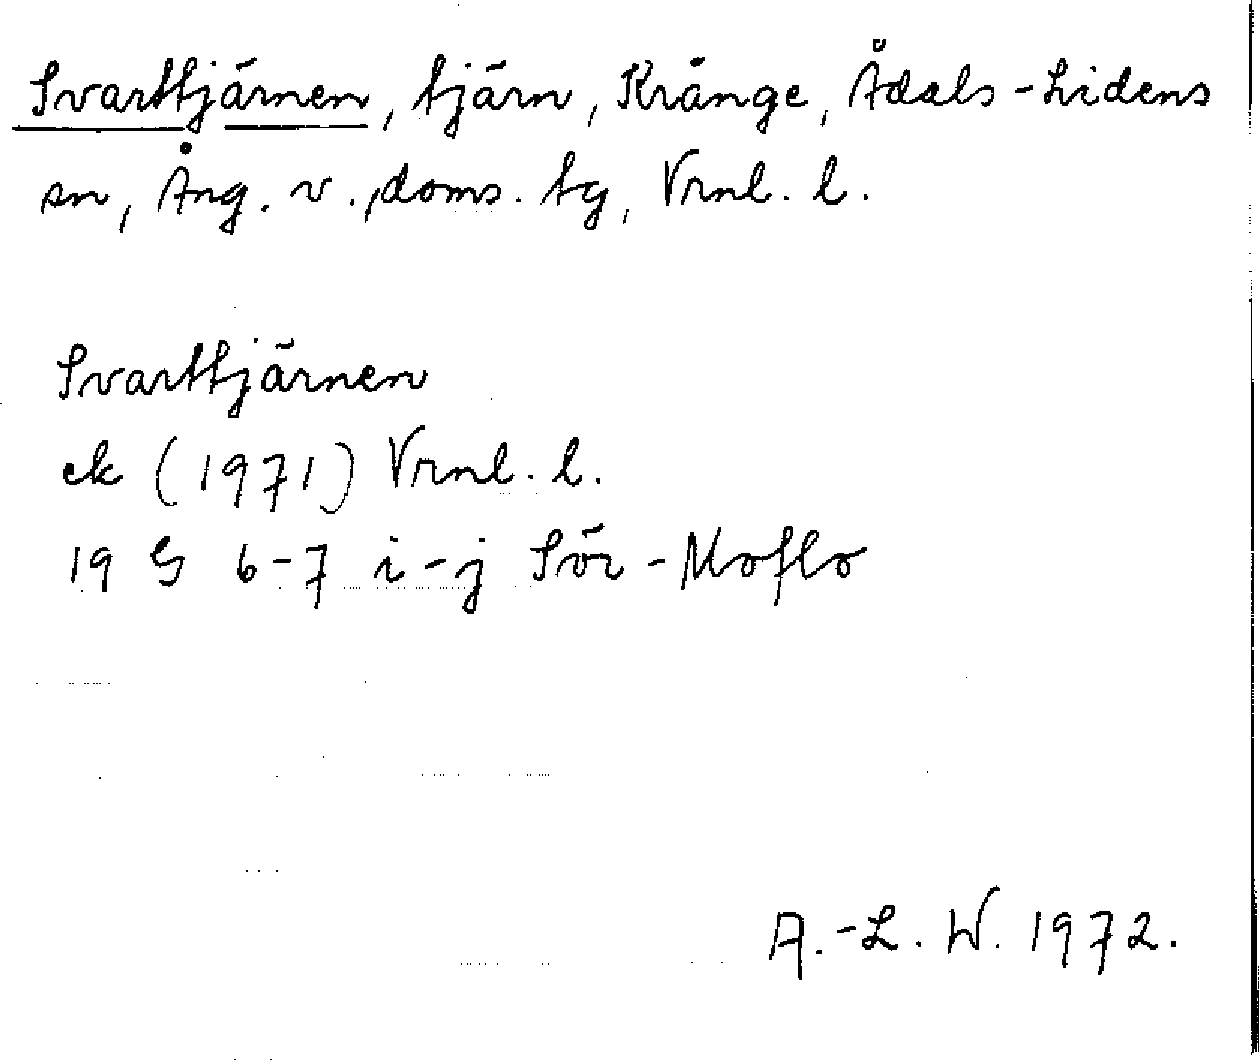 Svarttjärnen, tjärn, Krånge, Ådals-Lidens
sn, Ång. v., doms. tg, Vrnl. l.
Svarttjärnen
ek (1971) Vrnl. l.
19 G 6-7 i-j Sör-Moflo
A.-L. W. 1972.